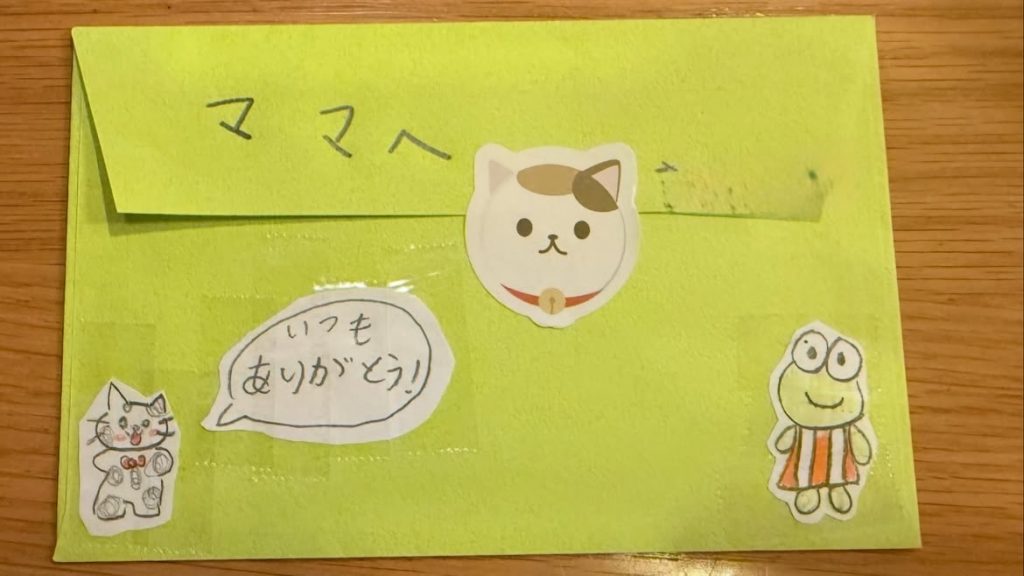 ママへ
いつも
ありがとう!